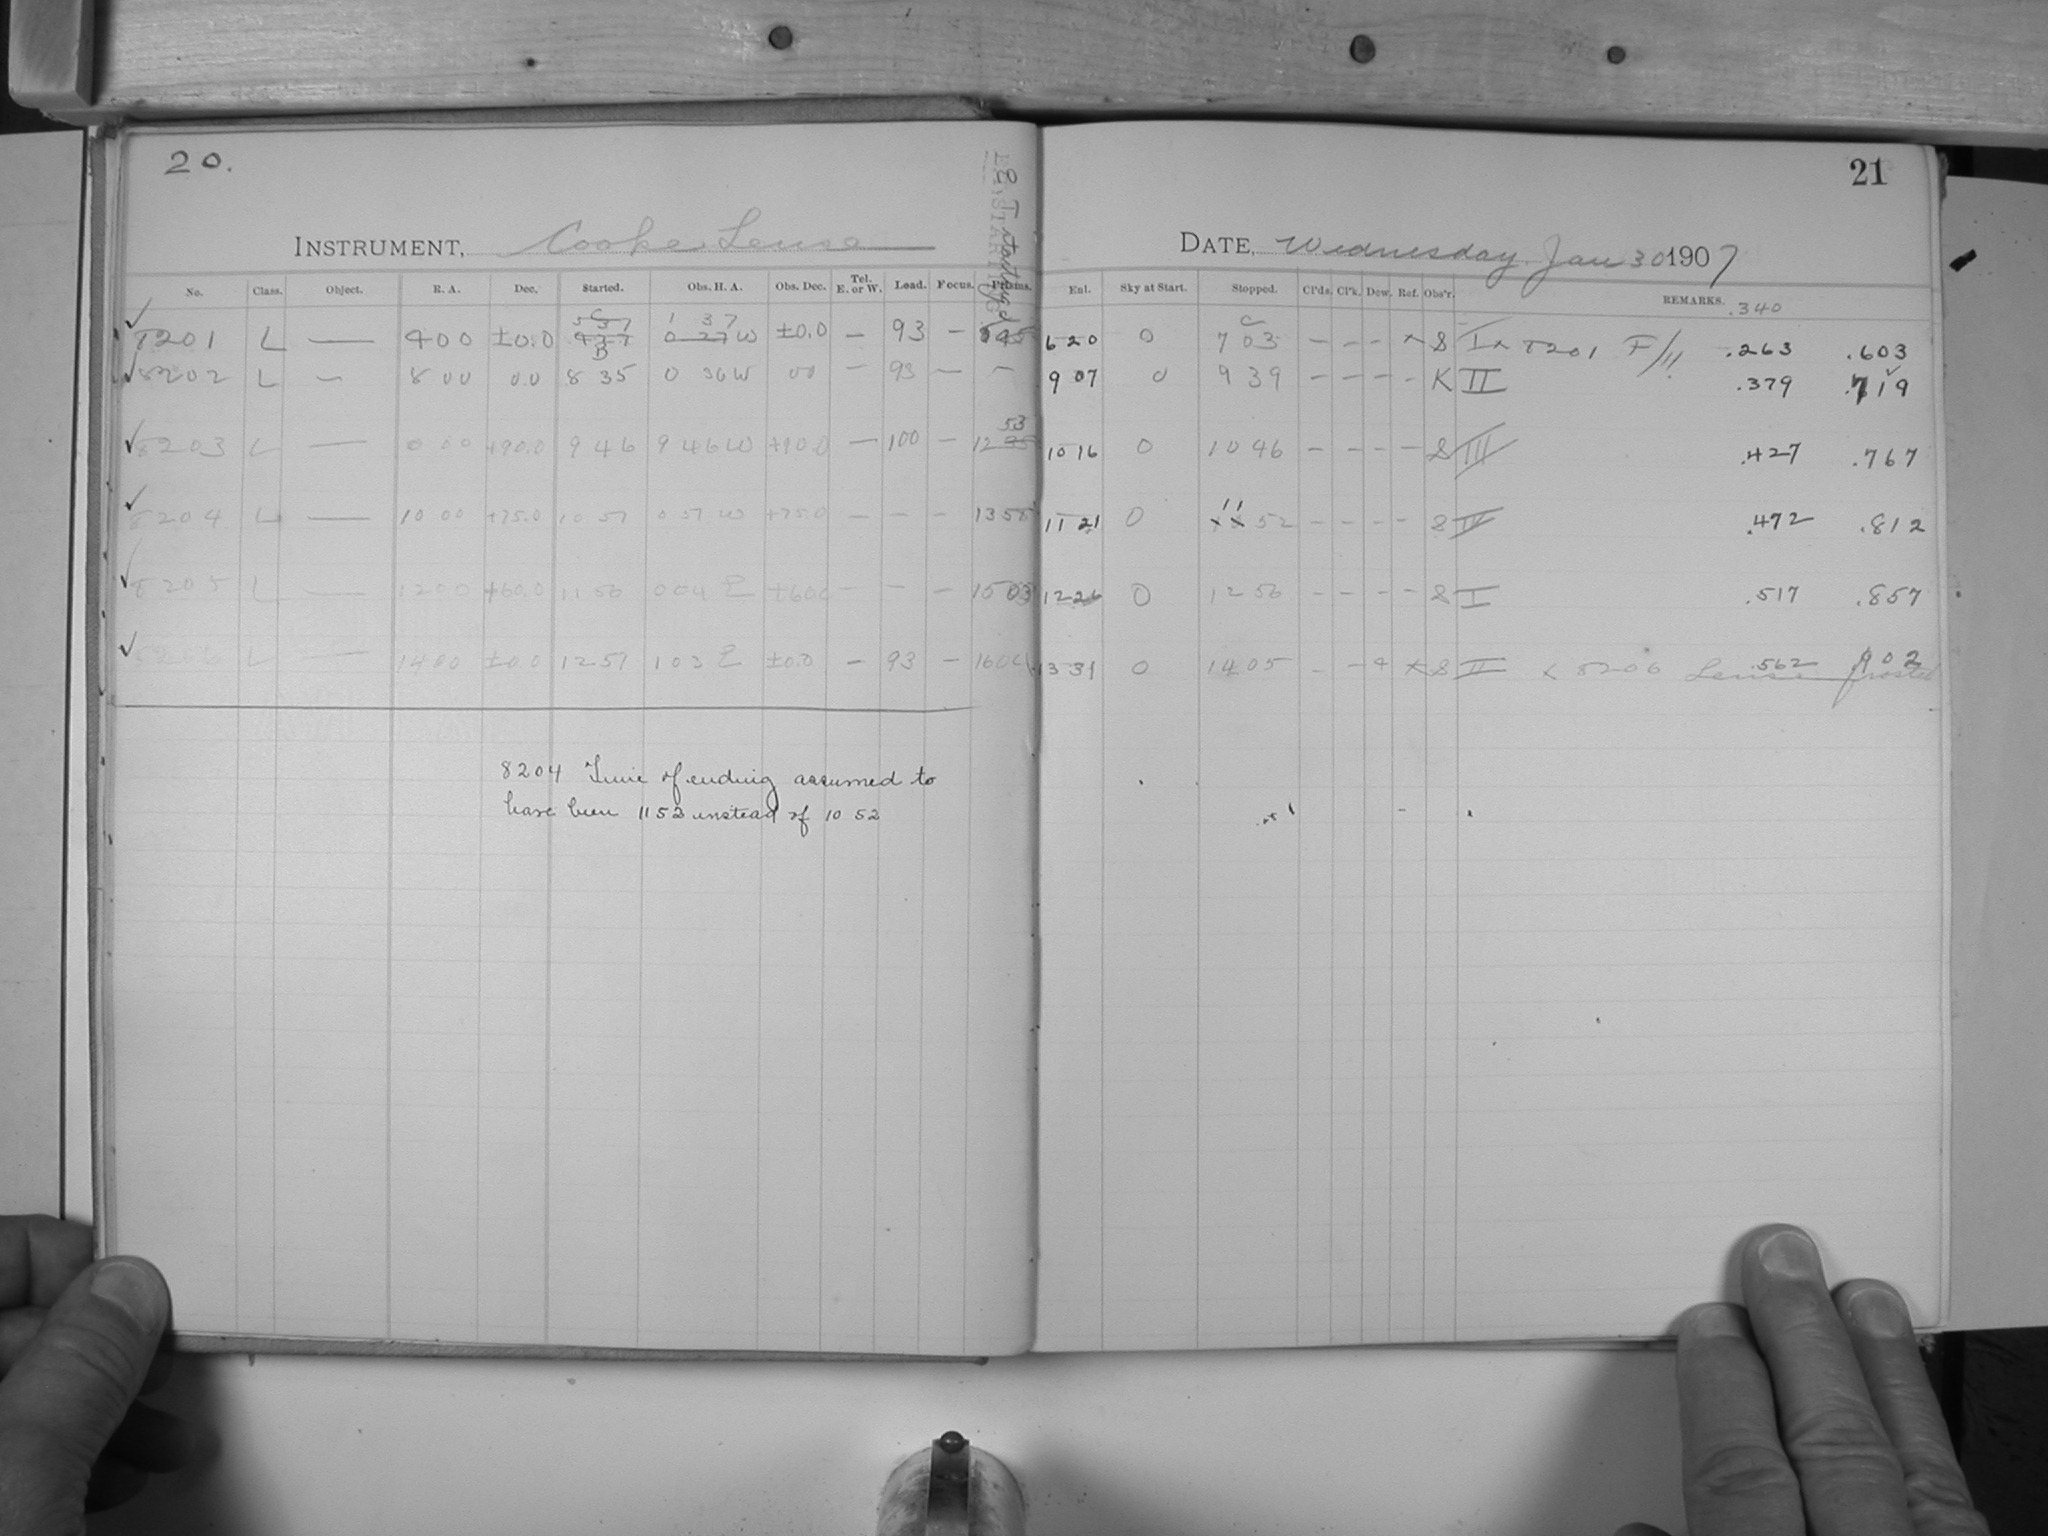 20.
21
INSTRUMENT, Cooke Lense
DATE, Wednesday Jan 30 1907
No. Class. Object. R. A. Dec. Started. Obs. H. A. Obs. Dec. Tel. E. or W. Lead. Focus. Prisms. Enl. Sky at Start. Stopped. Cl'ds. Cl'k. Dew. Ref. Obs'r. REMARKS. .340
✓ 8201 L — 400 ±0.0 5 37 1 37 W ±0.0 — 93 — 6 20 0 7 03 — — — × S I × 8201 F/11 .263 .603
✓ 8202 L — 8 00 0.0 8 35 0 36 W 00 — 93 — — 9 07 0 9 39 — — — — K II .379 .719
✓ 8203 L — 0 00 +90.0 9 46 9 46 W +90.0 — 100 — 12 53 10 16 0 10 46 — — — — S III .427 .767
✓ 8204 L — 10 00 +75.0 10 57 0 57 W +75.0 — — — 13 58 11 21 0 11 52 — — — — S IV .472 .812
✓ 8205 L — 12 00 +60.0 11 56 0 04 E +60.0 — — — 15 03 12 26 0 12 56 — — — — S I .517 .857
✓ 8206 L — 14 00 ±0.0 12 57 1 03 E ±0.0 — 93 — 13 31 0 14 05 — — 4 × S II × 8206 Lense frosted .562 .902
8204 Time of ending assumed to
have been 11 52 instead of 10 52